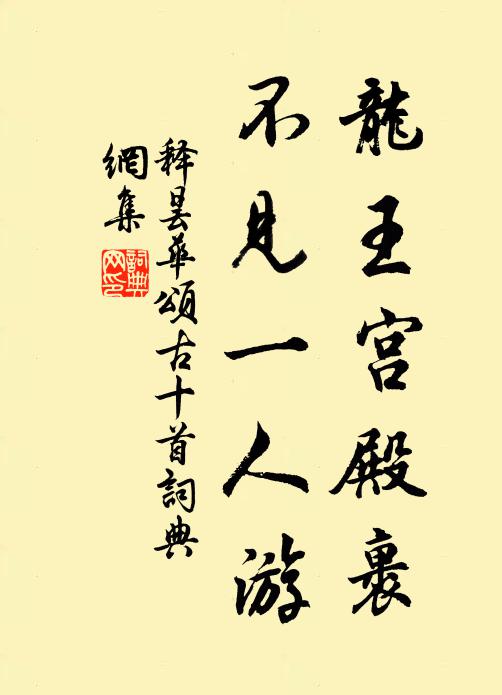 龍王宫殿裏
不見一人游
释昙華頌古十首詞典
網集
詞典
网印